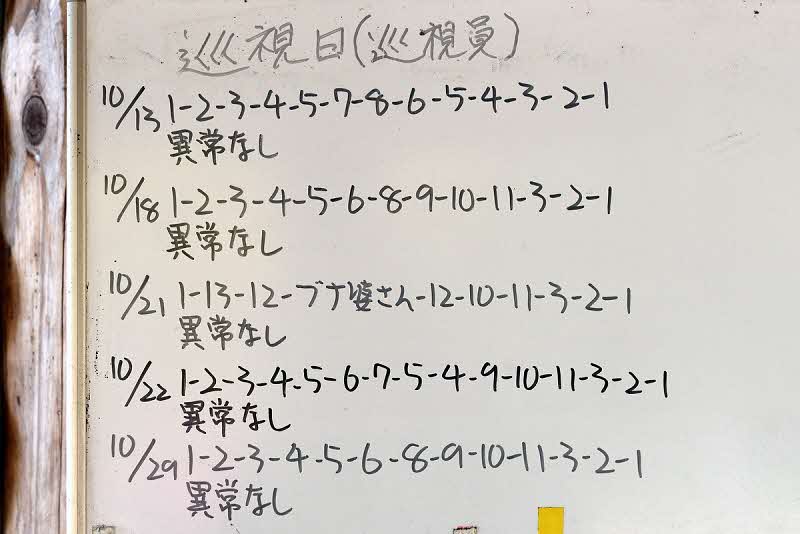 巡視日(巡視員)
10/13 1-2-3-4-5-7-8-6-5-4-3-2-1
異常なし
10/18 1-2-3-4-5-6-8-9-10-11-3-2-1
異常なし
10/21 1-13-12-ブナ婆さん-12-10-11-3-2-1
異常なし
10/22 1-2-3-4-5-6-7-5-4-9-10-11-3-2-1
異常なし
10/29 1-2-3-4-5-6-8-9-10-11-3-2-1
異常なし